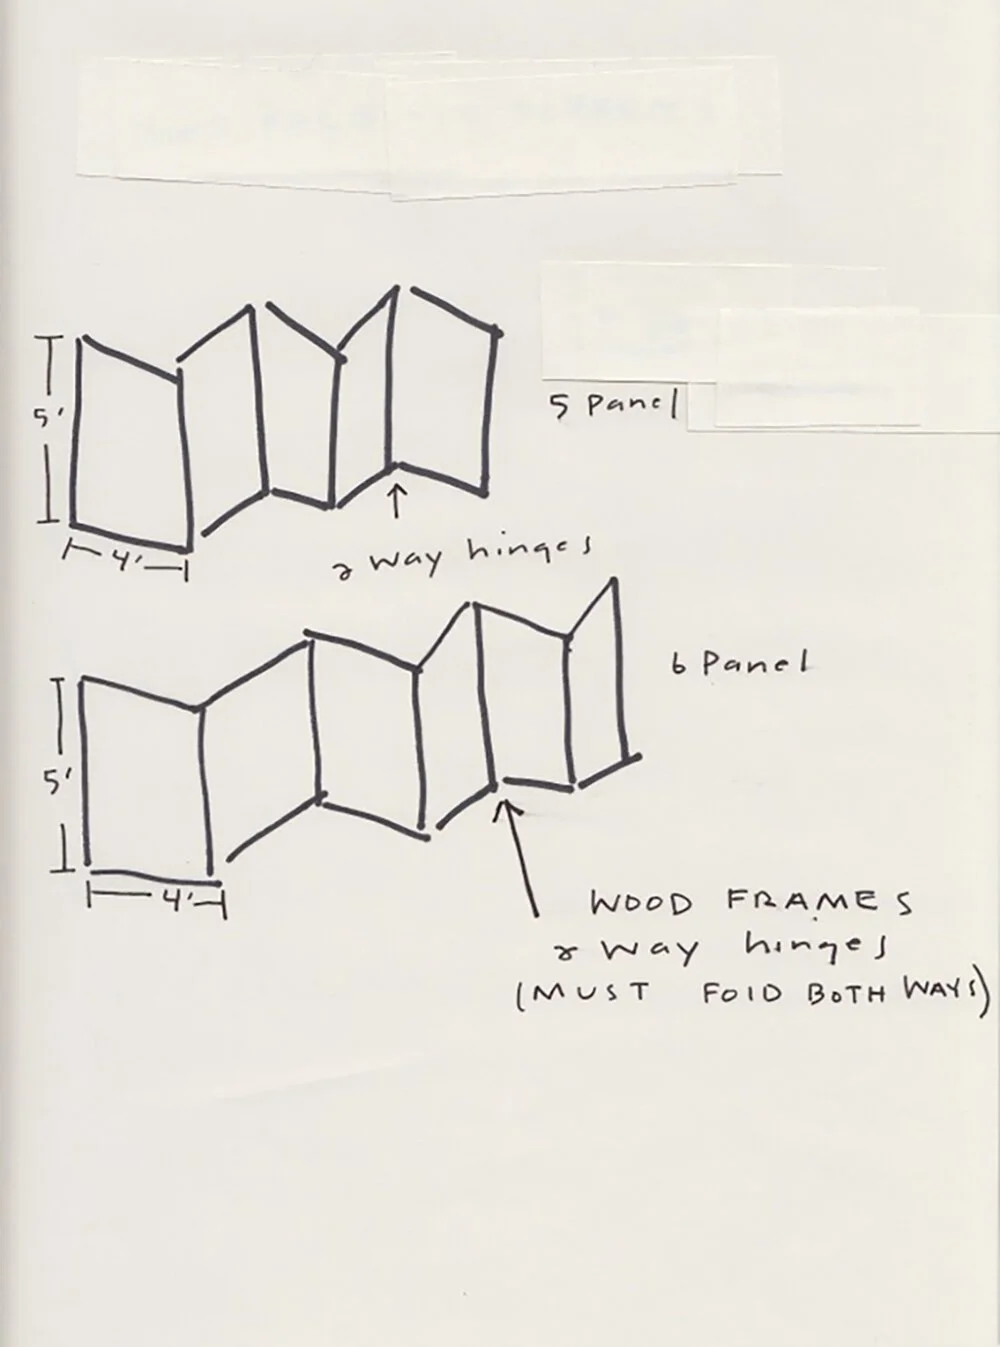 5 Panel
5'
4'
2 way hinges
6 Panel
5'
4'
WOOD FRAMES
2 way hinges
(MUST FOLD BOTH WAYS)